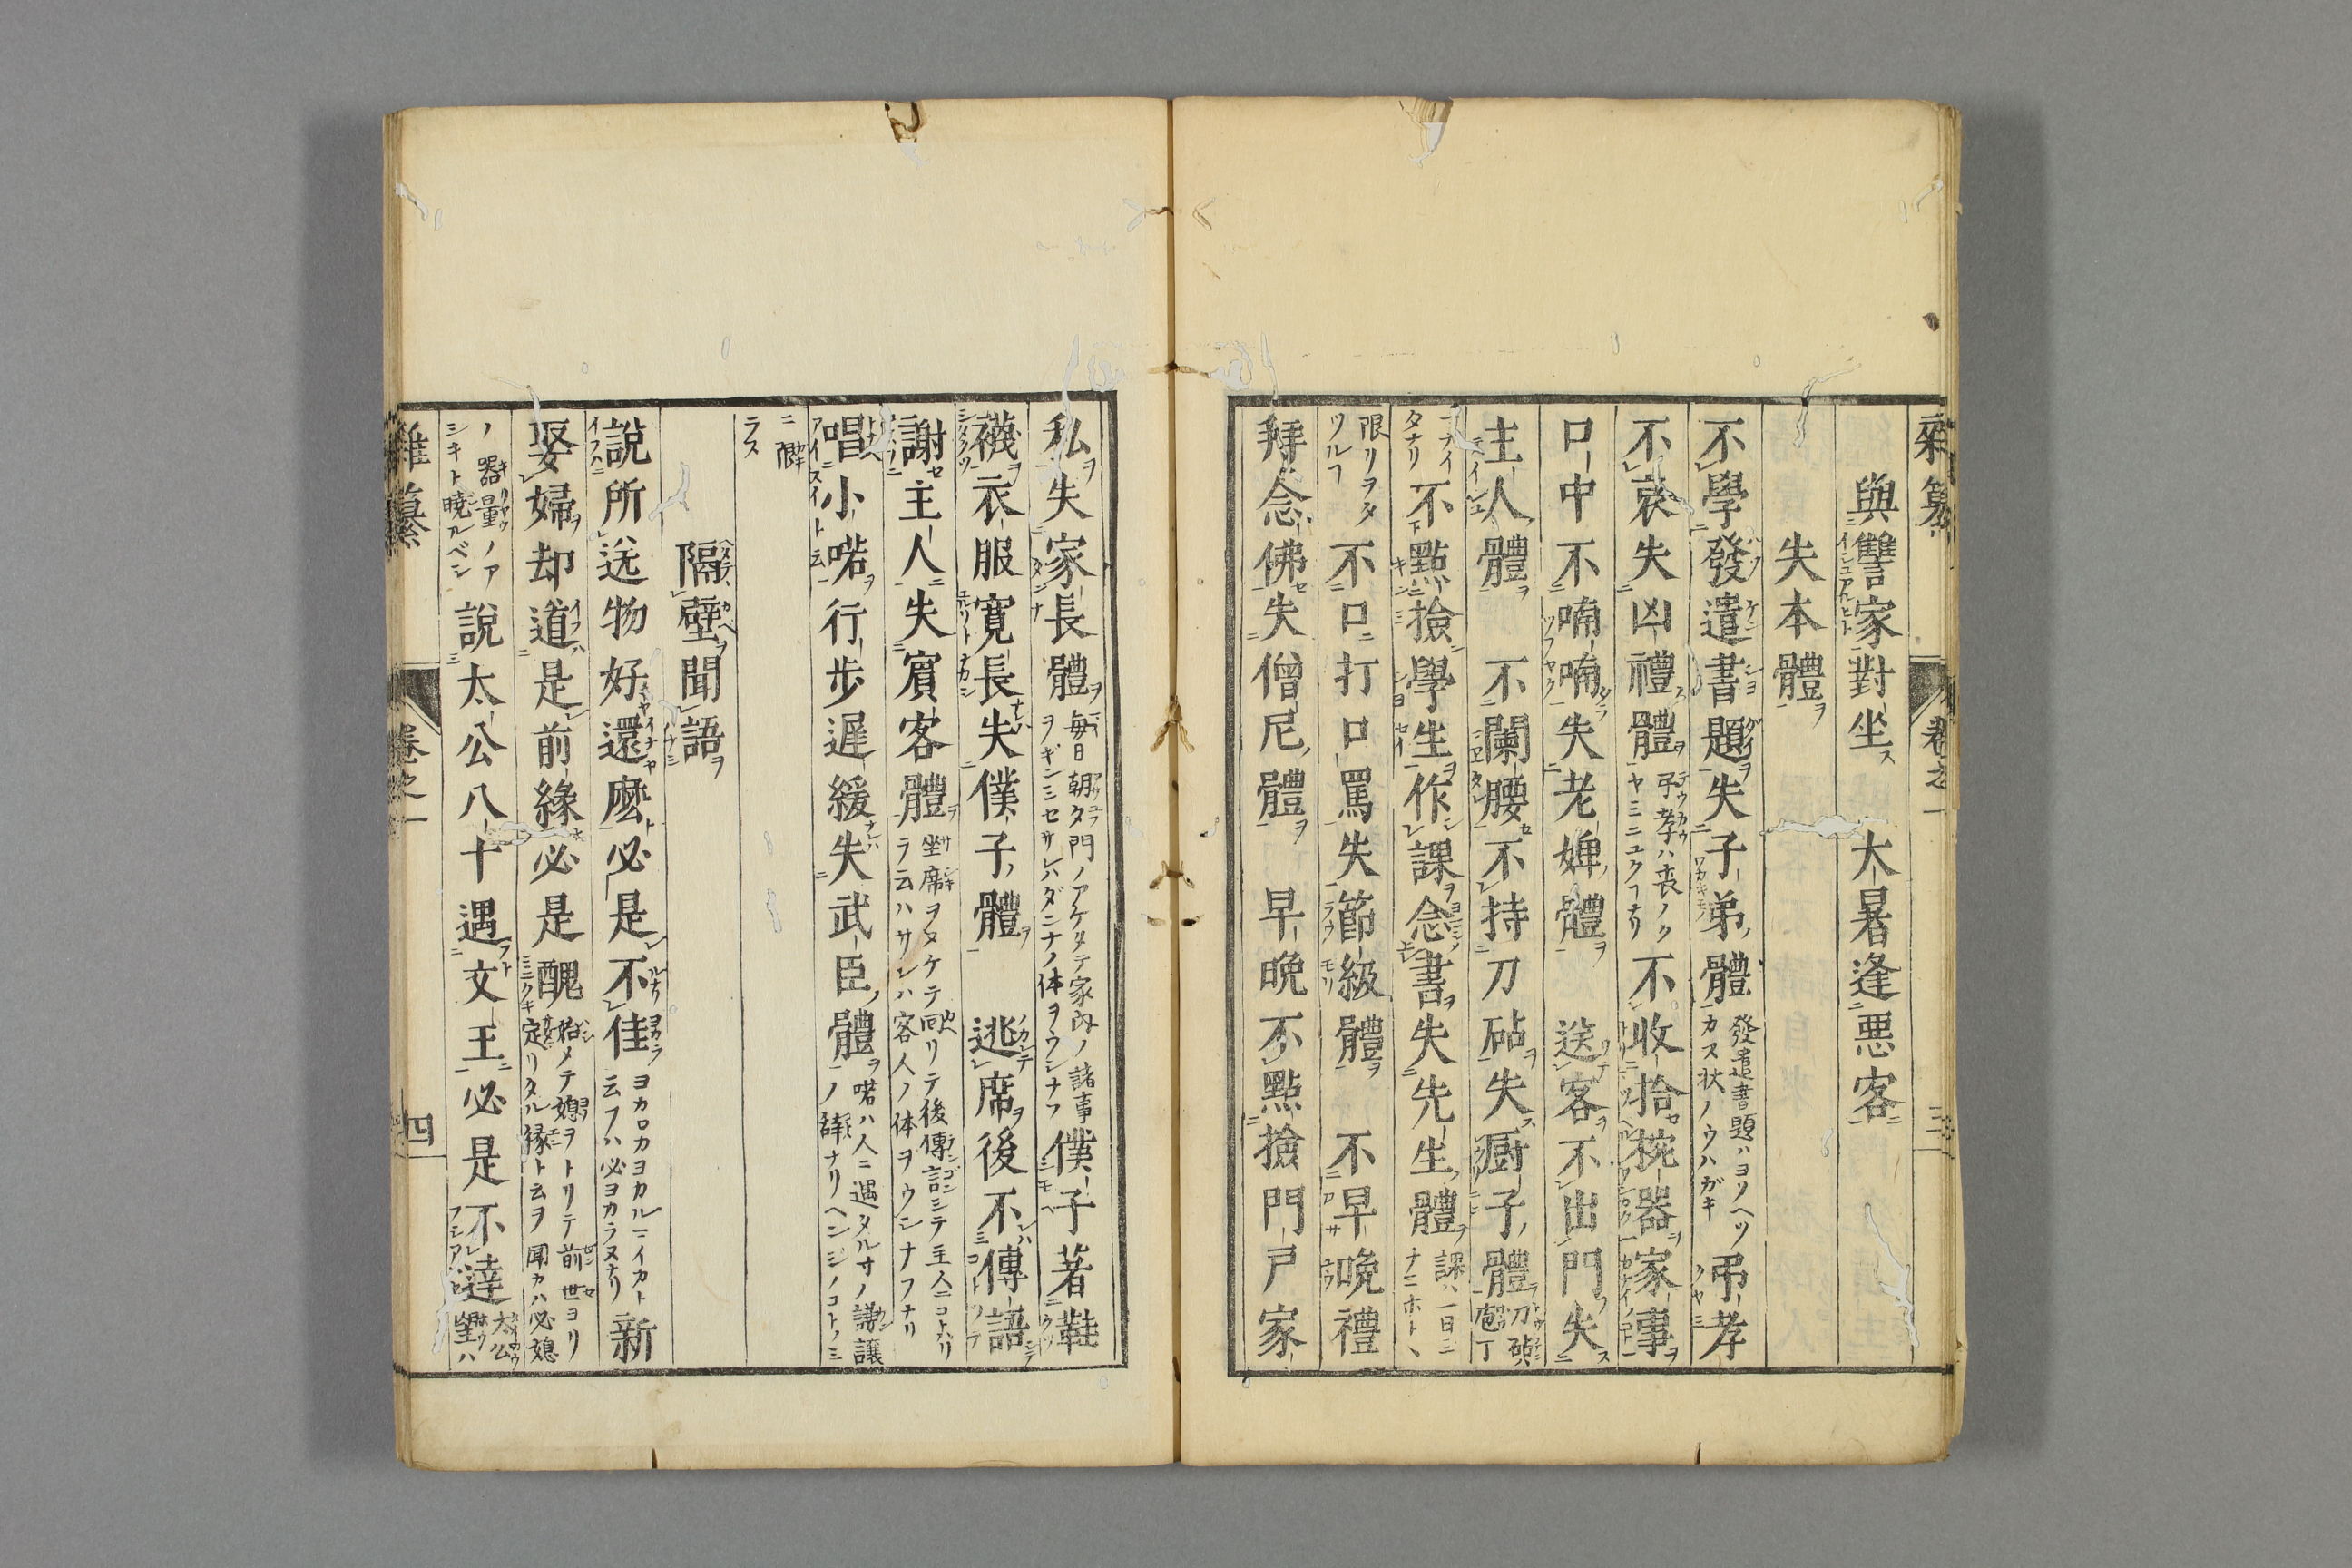 雜纂 卷之一 三
與讐家對坐 大暑逢悪客
失本體
不學發遣書題失子弟體 發遣書題ハヨソヘツカス狀ノウハガキ 吊孝
不哀失凶禮體 弔孝ハ喪ノクヤミニユクヿナリ 不收拾椀器家事
口中不喃喃失老婢體 送客不出門失
主人體 不闌腰不持刀砧失厨子體 刀砧庖丁
マナイタナリ 不點撿學生作課念書失先生體 課ハ一日ニナニホト丶
限リヲタツルヿ 不口打口罵失節級體 不早晩禮
拜念佛失僧尼體 早晩不點撿門戸家
私失家長體 毎日朝夕門ノアケタテ家内ノ諸事ヲギンミセサレハダンナノ体ヲウシナフ 僕子著鞋
襪衣服寛長失僕子體 逃席後不傳語
謝主人失賓客體 坐席ヲヌケテ回リテ後傳言シテ主人ニコトハリラ云ハサレハ客人ノ体ヲウシナフナリ
唱小喏行步遲緩失武臣體 喏ハ人ニ遇タルサノ謙讓ノ辭ナリヘンジノコトノミ
ニ僻ラス
隔壁聞語
說所送物好還麽必是不佳 ヨカロカヨカルマイカト云フハ必ヨカラヌナリ 新
娶婦却道是前緣必是醜 始メテ媳ヲトリテ前世ヨリ定リタル緣ト云ヲ聞カハ必媳
ノ器量ノアシキト曉ルベシ 說太公八十遇文王必是不達 太公望ハ
雜纂 卷之一 四